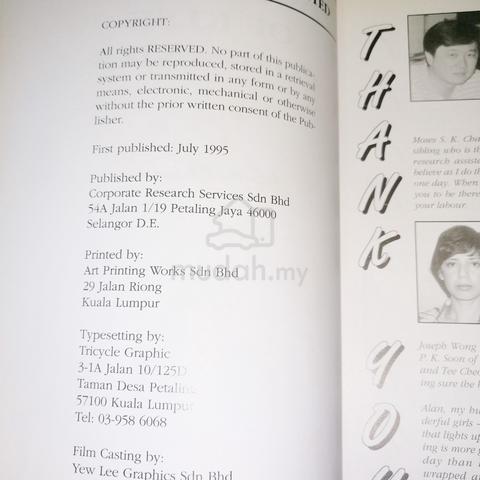 TED
COPYRIGHT:
All rights RESERVED. No part of this publica-
tion may be reproduced, stored in a retrieval
system or transmitted in any form or by any
means, electronic, mechanical or otherwise
without the prior written consent of the Pub-
lisher.
First published: July 1995
Published by:
Corporate Research Services Sdn Bhd
54A Jalan 1/19 Petaling Jaya 46000
Selangor D.E.
Printed by:
Art Printing Works Sdn Bhd
29 Jalan Riong
Kuala Lumpur
Typesetting by:
Tricycle Graphic
3-1A Jalan 10/125D
Taman Desa Petaling
57100 Kuala Lumpur
Tel: 03-958 6068
Film Casting by:
Yew Lee Graphics Sdn Bhd
mudah.my
THANK
YOU
Moses S. K. Cha
sibling who is th
research assista
believe as I do th
one day. When
you to be there
your labour.
Joseph Wong
P. K. Soon of
and Tee Cheo
ing sure the b
Alan, my hu
derful girls –
that lights up
ing is more g
day than
wrapped a